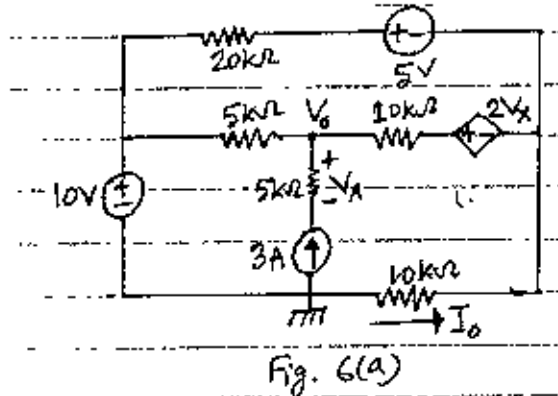 20kΩ
+-
5V
5kΩ
V₀
10kΩ
2Vx
10V
+
5kΩ
-
3A
10kΩ
I₀
Fig. 6(a)